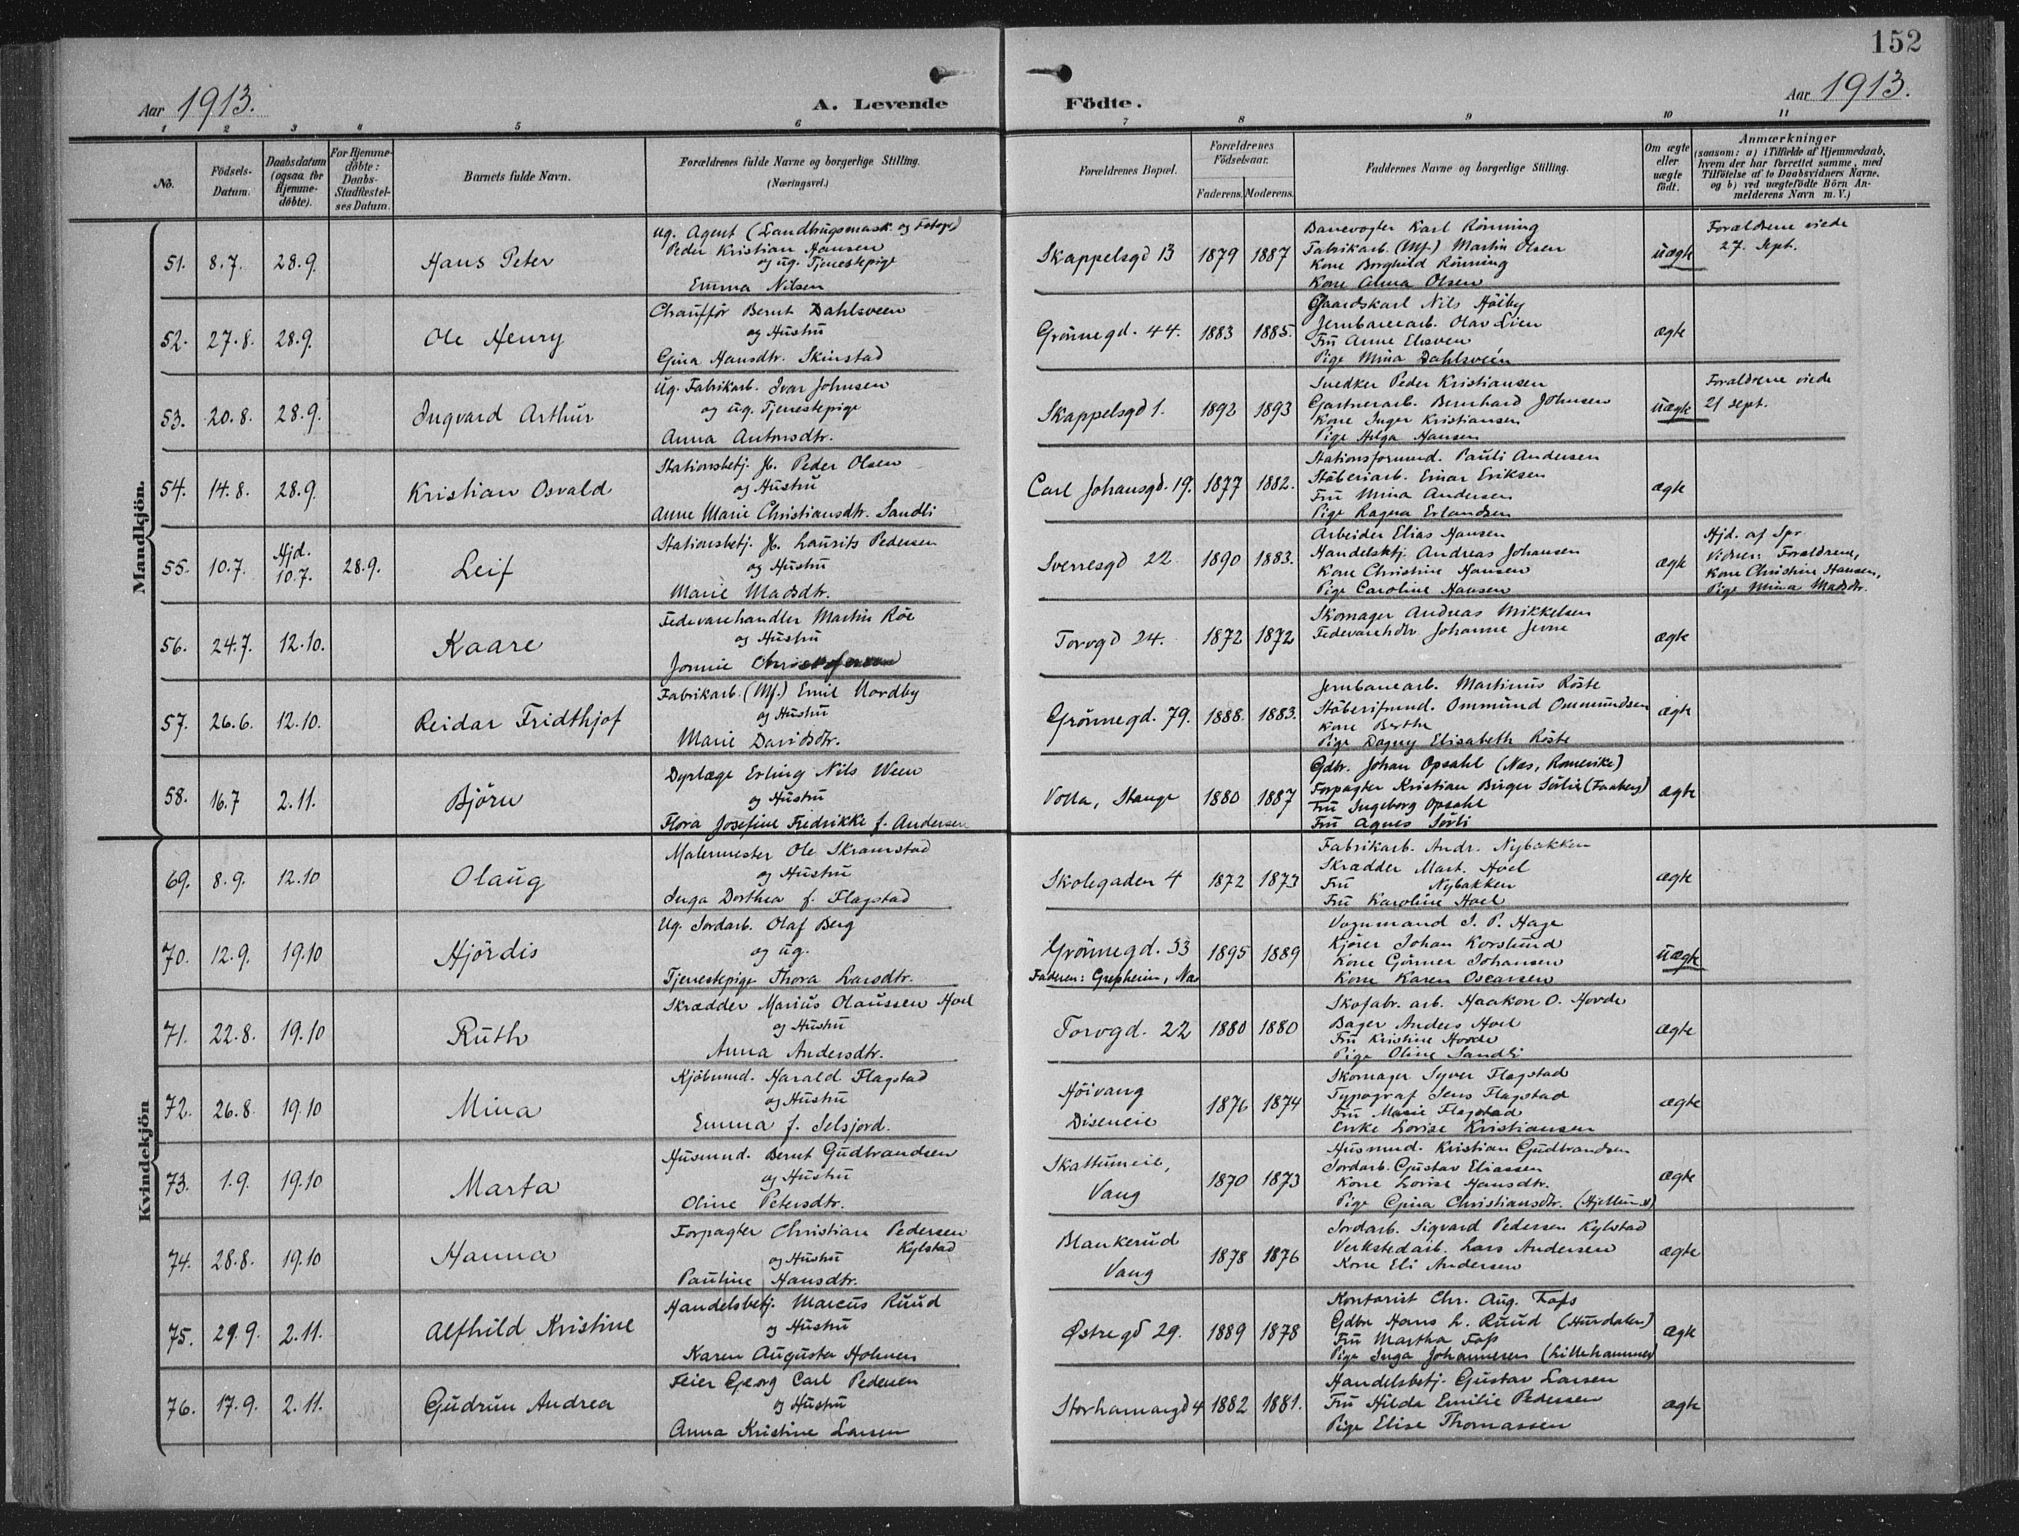 152
Aar 1913.
A. Levende
Födte.
Aar 1913.
1 2 3 4 5 6 7 8 9 10 11
No.
Födsels-
Datum.
Daabsdatum
(ogsaa for
Hjemme-
døbte).
For Hjemme-
döbte:
Daabs-
Stadfæstel-
ses Datum.
Barnets fulde Navn.
Forældrenes fulde Navne og borgerlige Stilling.
(Næringsvei.)
Forældrenes Bopæl.
Forældrenes
Födselsaar.
Faderens. Moderens.
Faddernes Navne og borgerlige Stilling.
Om ægte
eller
uægte
født.
Anmærkninger
(saasom: a) i Tilfælde af Hjemmedaab,
hvem der har forrettet samme, med
Tilföielse af to Daabsvidners Navne.
og b) ved uægtefödte Börn An-
melderens Navn m. V.)
Mandkjön.
51. 8.7. 28.9. Hans Peter
Ug. Agent (Landbrugsmask. og Fotogr)
Peder Kristian Hansen
og ug. Tjenestepige
Emma Nilsen
Skappelsgd 13 1879 1887
Banevogter Karl Rönning
Fabrikarb. (Mf.) Martin Olsen
Kone Borghild Rönning
Kone Alma Olsen
uægte
Foraldrene viede
27. Sept.
52. 27.8. 28.9. Ole Henry
Chaufför Bernt Dahlsveen
og Hustru
Gina Hansdtr. Skinstad
Grönnegd. 44. 1883 1885.
Gaardskarl Nils Höiby
Jernbanearb. Olav Lien
Fru Anne Elisven
Pige Mina Dahlsveén
ægte
53. 20.8. 28.9. Ingvard Arthur
Ug. Fabrikarb. Ivar Johnsen
og ug. Tjenestepige
Anna Antonsdtr.
Skappelsgd 1. 1892 1893
Snedker Peder Kristiansen
Gartnerarb. Bernhard Johnsen
Kone Inger Kristiansen
Pige Helga Hansen
uægte
Foraldrene viede
21 sept.
54. 14.8. 28.9. Kristian Osvald
Stationsbetj. Jb. Peder Olsen
og Hustru
Anne Marie Christiansdtr. Sandli
Carl Johansgd. 19. 1877 1882.
Stationsformd. Pauli Andersen
Stöberiarb. Einar Eriksen
Fru Mina Andersen
Pige Ragna Erlandsen
ægte
55. 10.7. Hjd. 10.7. 28.9. Leif
Stationsbetj. Jb. Laurits Pedersen
og Hustru
Marie Madsdtr.
Sverresgd 22 1890 1883.
Arbeider Elias Hansen
Handelsbtj. Andreas Johansen
Kone Christine Hansen
Pige Caroline Hansen
ægte
Hjd. af Spr.
Vidner: Foraldrene,
Kone Christine Hansen,
Pige Mina Madsdtr.
56. 24.7. 12.10. Kaare
Fedevarehandler Martin Röe
og Hustru
Jonnie
Torvgd 24. 1872 1872
Skomager Andreas Mikkelsen
Fedevarehdlr Johanne Jevne
ægte
57. 26.6. 12.10. Reidar Fridthjof
Fabrikarb. (Mf.) Emil Nordby
og Hustru
Marie Davidsdtr.
Grönnegd. 79. 1888. 1883.
Jernbanearb. Martinus Röste
Stöberifmnd. Ommund Ommundsen
Kone Berthe
Pige Dagny Elisabeth Röste
ægte
58. 16.7 2.11. Björn
Dyrlæge Erling Nils Ween
og Hustru
Flora Josefine Fredrikke f. Andersen
Volla, Stange 1880 1887
Gdbr. Johan Opsahl (Nes, Romerike)
Forpagter Kristian Birger Sörlie (Faaberg)
Fru Ingeborg Opsahl
Fru Agnes Sörli
ægte
Kvindekjön
69. 8.9. 12.10 Olaug
Malermester Ole Skramstad
og Hustru
Inga Dorthea f. Flagstad
Skolegaden 4 1872 1873
Fabrikarb. Andr. Nybakken
Skrædder Mart. Hoel
Fru Nybakken
Fru Karoline Hoel
ægte
70. 12.9. 19.10 Hjördis
Ug. Jordarb. Olaf Berg
og ug.
Tjenestepige Thora Larsdtr.
Grönnegd. 53
Faderen: Grepheim, Næs
1895 1889
Vognmand I. P. Hage
Kjörer Johan Korslund
Kone Gönner Johansen
Kone Karen Oscarsen
uægte
71. 22.8. 19.10 Ruth
Skrædder Marius Olaussen Hoel
og Hustru
Anna Andersdtr.
Torvgd. 22 1880 1880
Skofabr. arb. Haakon O. Hovde
Bager Anders Hoel
Fru Kristine Hovde
Pige Oline Sandli
ægte
72. 26.8. 19.10 Mina
Kjöbmnd. Harald Flagstad
og Hustru
Emma f. Selsjord.
Höivang
Diseneie
1876 1874
Skomager Syver Flagstad
Typograf Jens Flagstad
Fru Marie Flagstad
Enke Lovise Kristiansen
ægte
73. 1.9. 19.10 Marta
Husmnd. Bernt Gudbrandsen
og Hustru
Oline Petersdtr.
Skattumeie,
Vang
1870 1873
Husmnd. Kristian Gudbrandsen
Jordarb. Gustav Eliassen
Kone Lovise Hansdtr.
Pige Gina Christiansdtr. (Hjellum st)
ægte
74. 28.8. 19.10 Hanna
Forpagter Christian Pedersen
Kylstad
og Hustru
Pauline Hansdtr.
Blankerud
Vang
1878 1876
Jordarb. Sigvard Pedersen Kylstad
Verkstedarb. Lars Andersen
Kone Eli Andersen
ægte
75. 29.9. 2.11. Alfhild Kristine
Handelsbetj. Marcus Ruud
og Hustru
Karen Augusta Holmen
Østregd 29. 1889 1878
Kontorist Chr. Aug. Foss
Gdbr Hans L. Ruud (Hurdalen)
Fru Martha Foss
Pige Inga Johannesen (Lillehammer)
ægte
76. 17.9. 2.11. Gudrun Andrea
Feier Georg Carl Pedersen
og Hustru
Anna Kristine Larsen
Storhamargd 4 1882 1881.
Handelsbetj. Gustav Larsen
Fru Hilda Emilie Pedersen
Pige Elise Thomassen
ægte